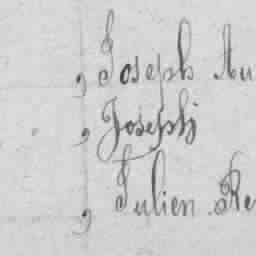 , Joseph Au
, Joseph
, Julien Re